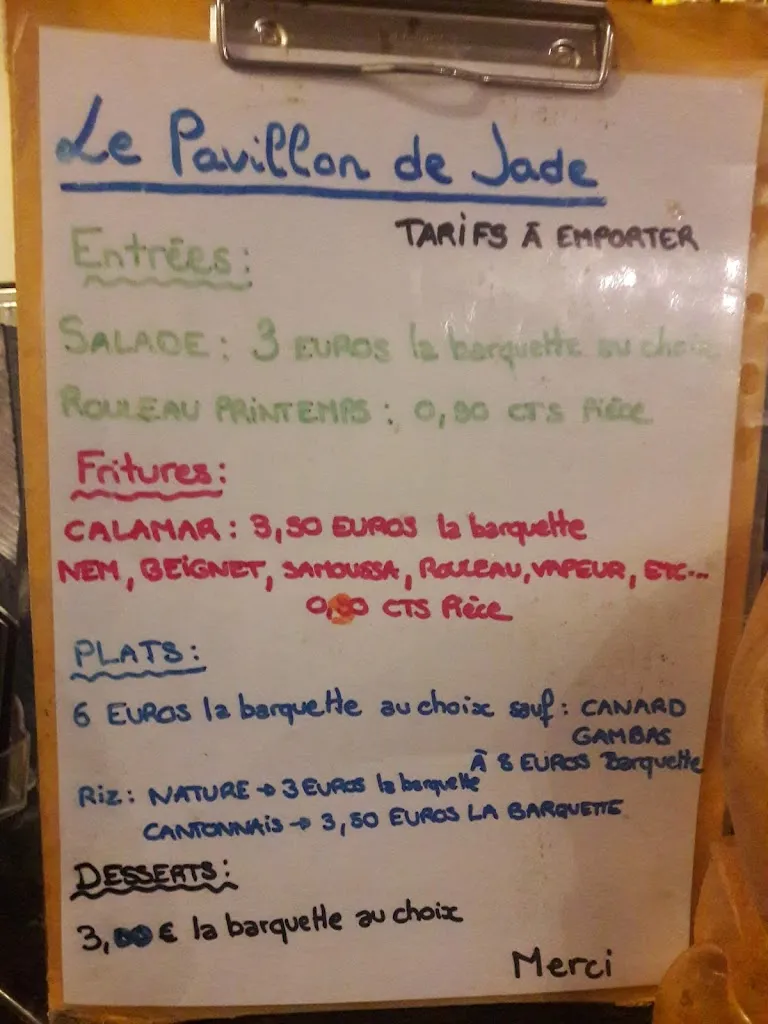 Le Pavillon de Jade
TARIFS À EMPORTER
Entrées:
SALADE: 3 EUROS la barquette au choix
ROULEAU PRINTEMPS: 0,90 CTS Pièce
Fritures:
CALAMAR: 3,50 EUROS la barquette
NEM, BEIGNET, SAMOUSSA, ROULEAU, VAPEUR, ETC...
0,90 CTS Pièce
PLATS:
6 EUROS la barquette au choix sauf: CANARD
GAMBAS
À 8 EUROS Barquette
RIZ: NATURE → 3 EUROS la barquette
CANTONNAIS → 3,50 EUROS LA BARQUETTE
DESSERTS:
3,00 € la barquette au choix
Merci